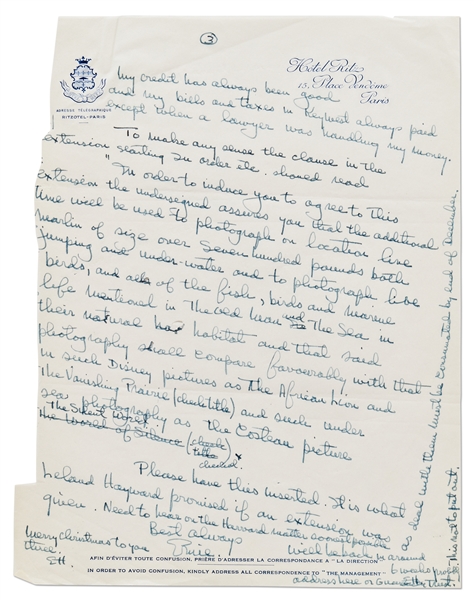 ③
Hotel Ritz
15, Place Vendôme
Paris
ADRESSE TÉLÉGRAPHIQUE
RITZOTEL-PARIS
My credit has always been good
and my bills and taxes in Key West always paid
except when a lawyer was handling my money.
To make any sense the clause in the
extension stating In order etc. should read
"In order to induce you to agree to this
extension the undersigned assures you that the additional
time will be used to photograph on location live
marlin of size over seven hundred pounds both
jumping and under-water and to photograph live
birds, and all of the fish, birds and marine
life mentioned in The Old Man and The Sea in
their natural habitat and that said
photography shall compare favourably with that
in such Disney pictures as The African Lion and
The Vanishing Prairie (check title) and such under
sea photography as the Costeau picture
The Silent World
The World of Silence (check title) checked.
Please have this inserted. It is what
Leland Hayward promised if an extension was
given. Need to hear on the Hayward matter soonest possible
Best always
Ernie.
Merry Christmas to you
three.
EH.
Will be back in around
6 weeks
address here or Guaranty Trust
as deal with them must be consummated by end of December.
This not to put out.
AFIN D'ÉVITER TOUTE CONFUSION, PRIÈRE D'ADRESSER LA CORRESPONDANCE A "LA DIRECTION"
IN ORDER TO AVOID CONFUSION, KINDLY ADDRESS ALL CORRESPONDENCE TO "THE MANAGEMENT"